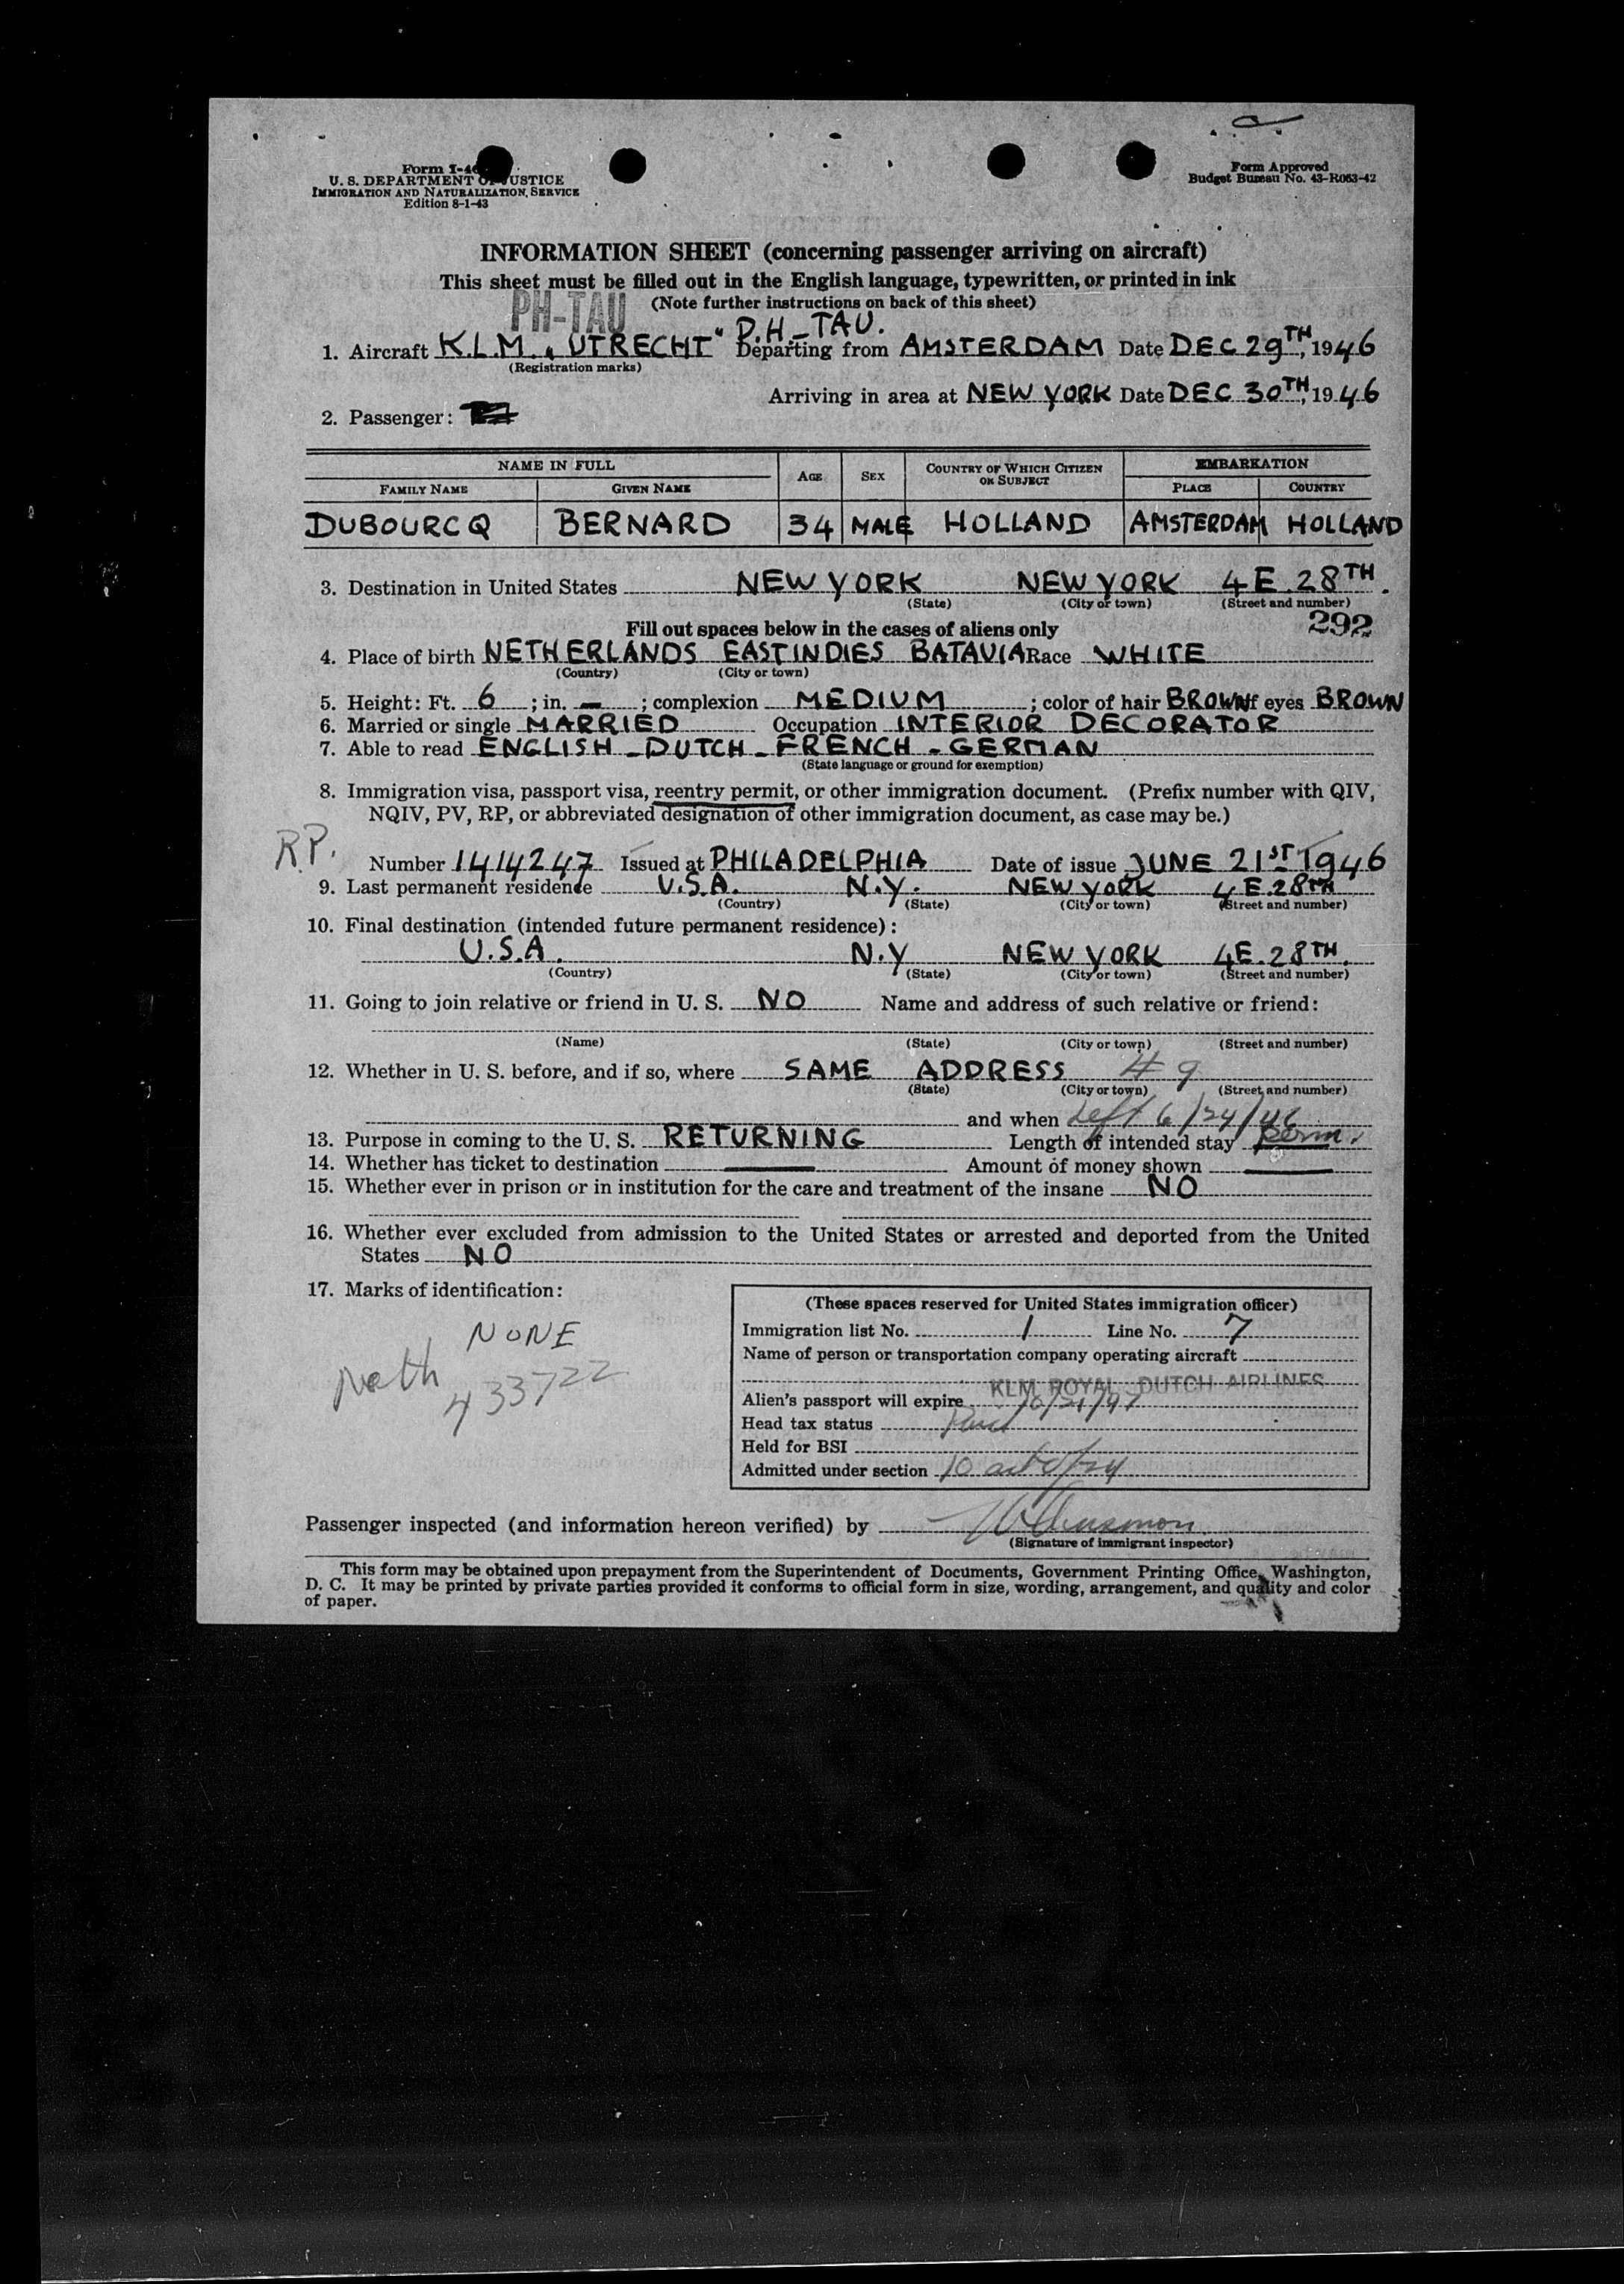 Form I-4
U. S. DEPARTMENT OF JUSTICE
IMMIGRATION AND NATURALIZATION SERVICE
Edition 8-1-43
Form Approved
Budget Bureau No. 43-R063-42
INFORMATION SHEET (concerning passenger arriving on aircraft)
This sheet must be filled out in the English language, typewritten, or printed in ink
(Note further instructions on back of this sheet)
PH-TAU
P.H-TAU.
1. Aircraft K.L.M. "UTRECHT" Departing from AMSTERDAM Date DEC 29TH, 1946
(Registration marks)
Arriving in area at NEW YORK Date DEC 30TH, 1946
2. Passenger:
NAME IN FULL AGE SEX COUNTRY OF WHICH CITIZEN OR SUBJECT EMBARKATION
FAMILY NAME GIVEN NAME PLACE COUNTRY
DUBOURCQ BERNARD 34 MALE HOLLAND AMSTERDAM HOLLAND
3. Destination in United States NEW YORK NEW YORK 4 E. 28TH.
(State) (City or town) (Street and number)
Fill out spaces below in the cases of aliens only
292
4. Place of birth NETHERLANDS EAST INDIES BATAVIA Race WHITE
(Country) (City or town)
5. Height: Ft. 6 ; in. – ; complexion MEDIUM ; color of hair BROWN of eyes BROWN
6. Married or single MARRIED Occupation INTERIOR DECORATOR
7. Able to read ENGLISH - DUTCH - FRENCH - GERMAN
(State language or ground for exemption)
8. Immigration visa, passport visa, reentry permit, or other immigration document. (Prefix number with QIV,
NQIV, PV, RP, or abbreviated designation of other immigration document, as case may be.)
R.P.
Number 1414247 Issued at PHILADELPHIA Date of issue JUNE 21ST 1946
9. Last permanent residence U.S.A. N.Y. NEW YORK 4 E. 28TH
(Country) (State) (City or town) (Street and number)
10. Final destination (intended future permanent residence):
U.S.A. N.Y NEW YORK 4E. 28TH.
(Country) (State) (City or town) (Street and number)
11. Going to join relative or friend in U. S. NO Name and address of such relative or friend:
(Name) (State) (City or town) (Street and number)
12. Whether in U. S. before, and if so, where SAME ADDRESS # 9
(State) (City or town) (Street and number)
and when Left 6/24/46
13. Purpose in coming to the U. S. RETURNING Length of intended stay perm.
14. Whether has ticket to destination — Amount of money shown —
15. Whether ever in prison or in institution for the care and treatment of the insane NO
16. Whether ever excluded from admission to the United States or arrested and deported from the United
States NO
17. Marks of identification:
NONE
Neth
433722
(These spaces reserved for United States immigration officer)
Immigration list No. 1 Line No. 7
Name of person or transportation company operating aircraft
KLM ROYAL DUTCH AIRLINES
Alien's passport will expire 10/21/47
Head tax status Paid
Held for BSI
Admitted under section
Passenger inspected (and information hereon verified) by
(Signature of immigrant inspector)
This form may be obtained upon prepayment from the Superintendent of Documents, Government Printing Office, Washington,
D. C. It may be printed by private parties provided it conforms to official form in size, wording, arrangement, and quality and color
of paper.